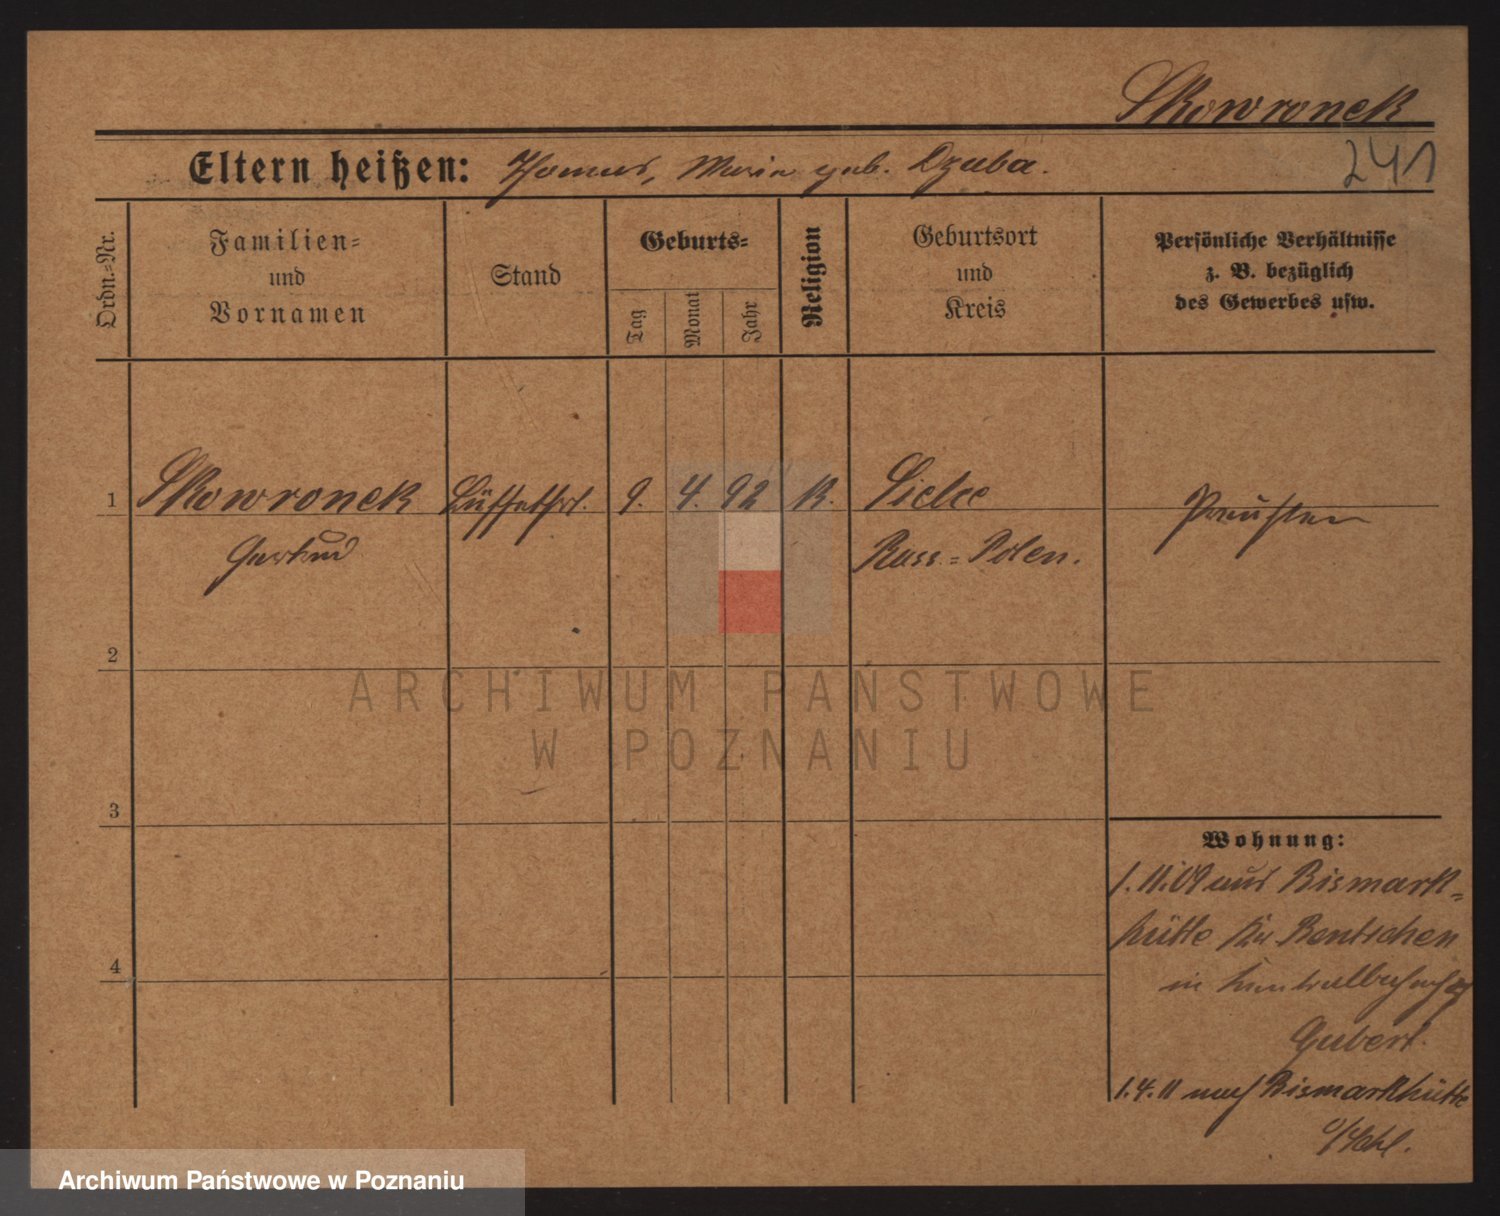 Skowronek
Eltern heißen: Thomas, Maria geb. Dzuba.
241
Ordn.-Nr.
Familien-
und
Vornamen
Stand
Geburts-
Tag
Monat
Jahr
Religion
Geburtsort
und
Kreis
Persönliche Verhältnisse
z. B. bezüglich
des Gewerbes usw.
1 Skowronek Büffetfrl. 9. 4. 92 K. Sielce Preußen
Gertrud Russ.=Polen.
2
3
4
Wohnung:
1.11.09 aus Bismark=
hütte zu Bentschen
in
Gubert.
1.4.11 nach Bismarkhütte
O/Schl.
ARCHIWUM PAŃSTWOWE
W POZNANIU
Archiwum Państwowe w Poznaniu